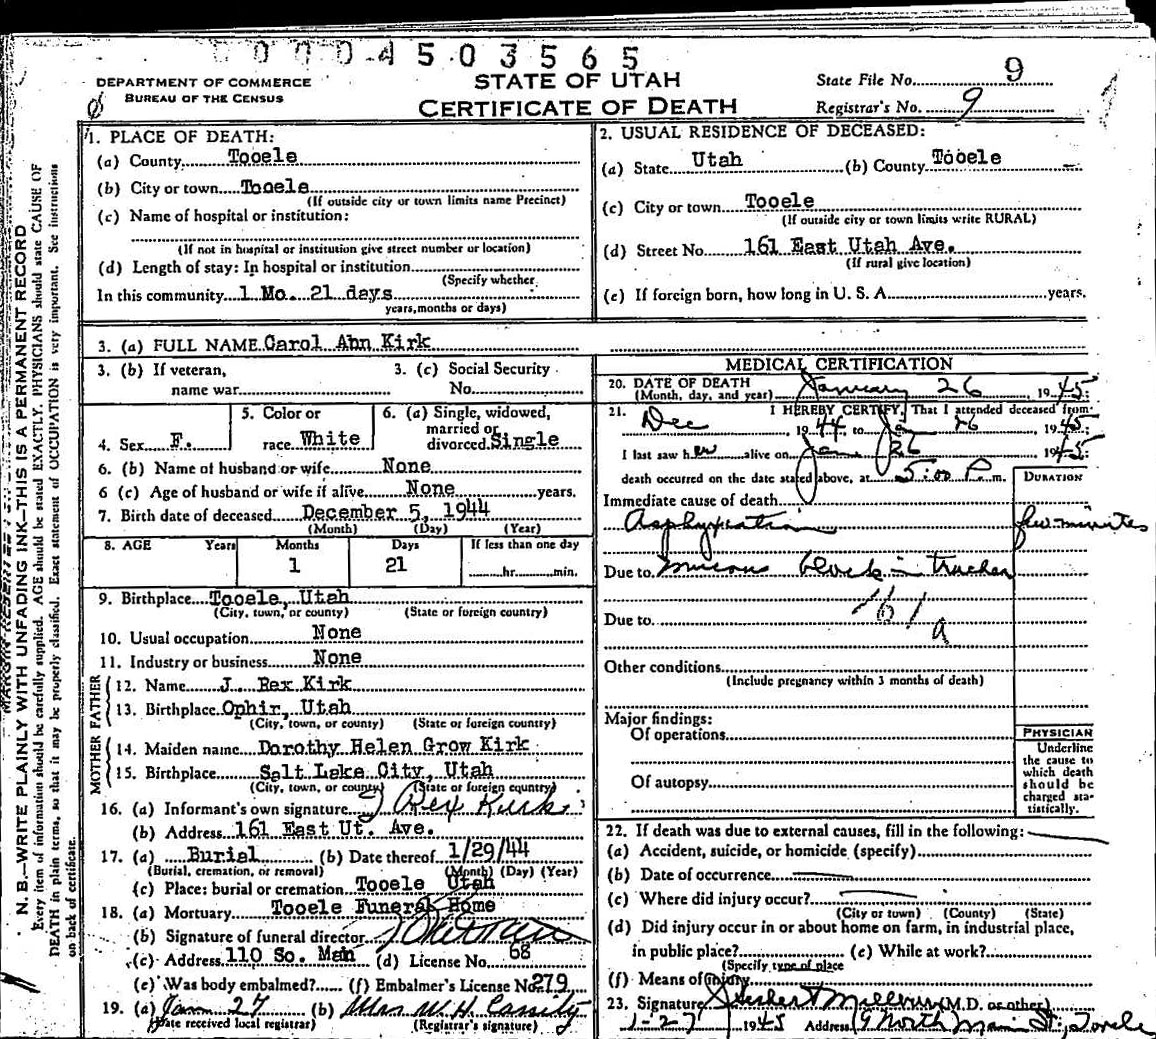 0 0 0 0 4 5 0 3 5 6 5
DEPARTMENT OF COMMERCE
BUREAU OF THE CENSUS
STATE OF UTAH
CERTIFICATE OF DEATH
State File No. 9
Registrar's No. 9
N. B.—WRITE PLAINLY WITH UNFADING INK—THIS IS A PERMANENT RECORD
Every item of information should be carefully supplied. AGE should be stated EXACTLY. PHYSICIANS should state CAUSE OF
DEATH in plain terms, so that it may be properly classified. Exact statement of OCCUPATION is very important. See instructions
on back of certificate.
1. PLACE OF DEATH:
(a) County Tooele
(b) City or town Tooele
(If outside city or town limits name Precinct)
(c) Name of hospital or institution:
(If not in hospital or institution give street number or location)
(d) Length of stay: In hospital or institution
(Specify whether
In this community 1 Mo. 21 days
years, months or days)
2. USUAL RESIDENCE OF DECEASED:
(a) State Utah (b) County Tooele
(c) City or town Tooele
(If outside city or town limits write RURAL)
(d) Street No. 161 East Utah Ave.
(If rural give location)
(e) If foreign born, how long in U. S. A. years.
3. (a) FULL NAME Carol Ann Kirk
3. (b) If veteran,
name war
3. (c) Social Security
No.
4. Sex F.
5. Color or
race White
6. (a) Single, widowed,
married or
divorced Single
6. (b) Name of husband or wife None
6 (c) Age of husband or wife if alive None years.
7. Birth date of deceased December 5, 1944
(Month) (Day) (Year)
8. AGE Years Months Days If less than one day
1 21 hr. min.
9. Birthplace Tooele, Utah
(City, town, or county) (State or foreign country)
10. Usual occupation None
11. Industry or business None
FATHER
12. Name J. Rex Kirk
13. Birthplace Ophir, Utah
(City, town, or county) (State or foreign country)
MOTHER
14. Maiden name Dorothy Helen Grow Kirk
15. Birthplace Salt Lake City, Utah
(City, town, or county) (State or foreign country)
16. (a) Informant's own signature J Rex Kirk
(b) Address 161 East Ut. Ave.
17. (a) Burial (b) Date thereof 1/29/44
(Burial, cremation, or removal) (Month) (Day) (Year)
(c) Place: burial or cremation Tooele Utah
18. (a) Mortuary Tooele Funeral Home
(b) Signature of funeral director
(c) Address 110 So. Main (d) License No. 68
(e) Was body embalmed? (f) Embalmer's License No. 279
19. (a) Jan 27 (b) Mrs W. H. Cassity
(Date received local registrar) (Registrar's signature)
MEDICAL CERTIFICATION
20. DATE OF DEATH
(Month, day, and year) January 26, 1945
21. I HEREBY CERTIFY, That I attended deceased from
Dec 1944, to Jan 26, 1945;
I last saw her alive on Jan 26 1945;
death occurred on the date stated above, at 5:00 P. m.
DURATION
Immediate cause of death
Asphyxiation few minutes
Due to mucous block in trachea
161
Due to
a
Other conditions
(Include pregnancy within 3 months of death)
Major findings:
Of operations
Of autopsy
PHYSICIAN
Underline
the cause to
which death
should be
charged sta-
tistically.
22. If death was due to external causes, fill in the following:
(a) Accident, suicide, or homicide (specify)
(b) Date of occurrence
(c) Where did injury occur?
(City or town) (County) (State)
(d) Did injury occur in or about home on farm, in industrial place,
in public place? (e) While at work?
(Specify type of place
(f) Means of injury
23. Signature Herbert Milburn (M.D. or other)
1-27 1945 Address 9 North Main St., Tooele